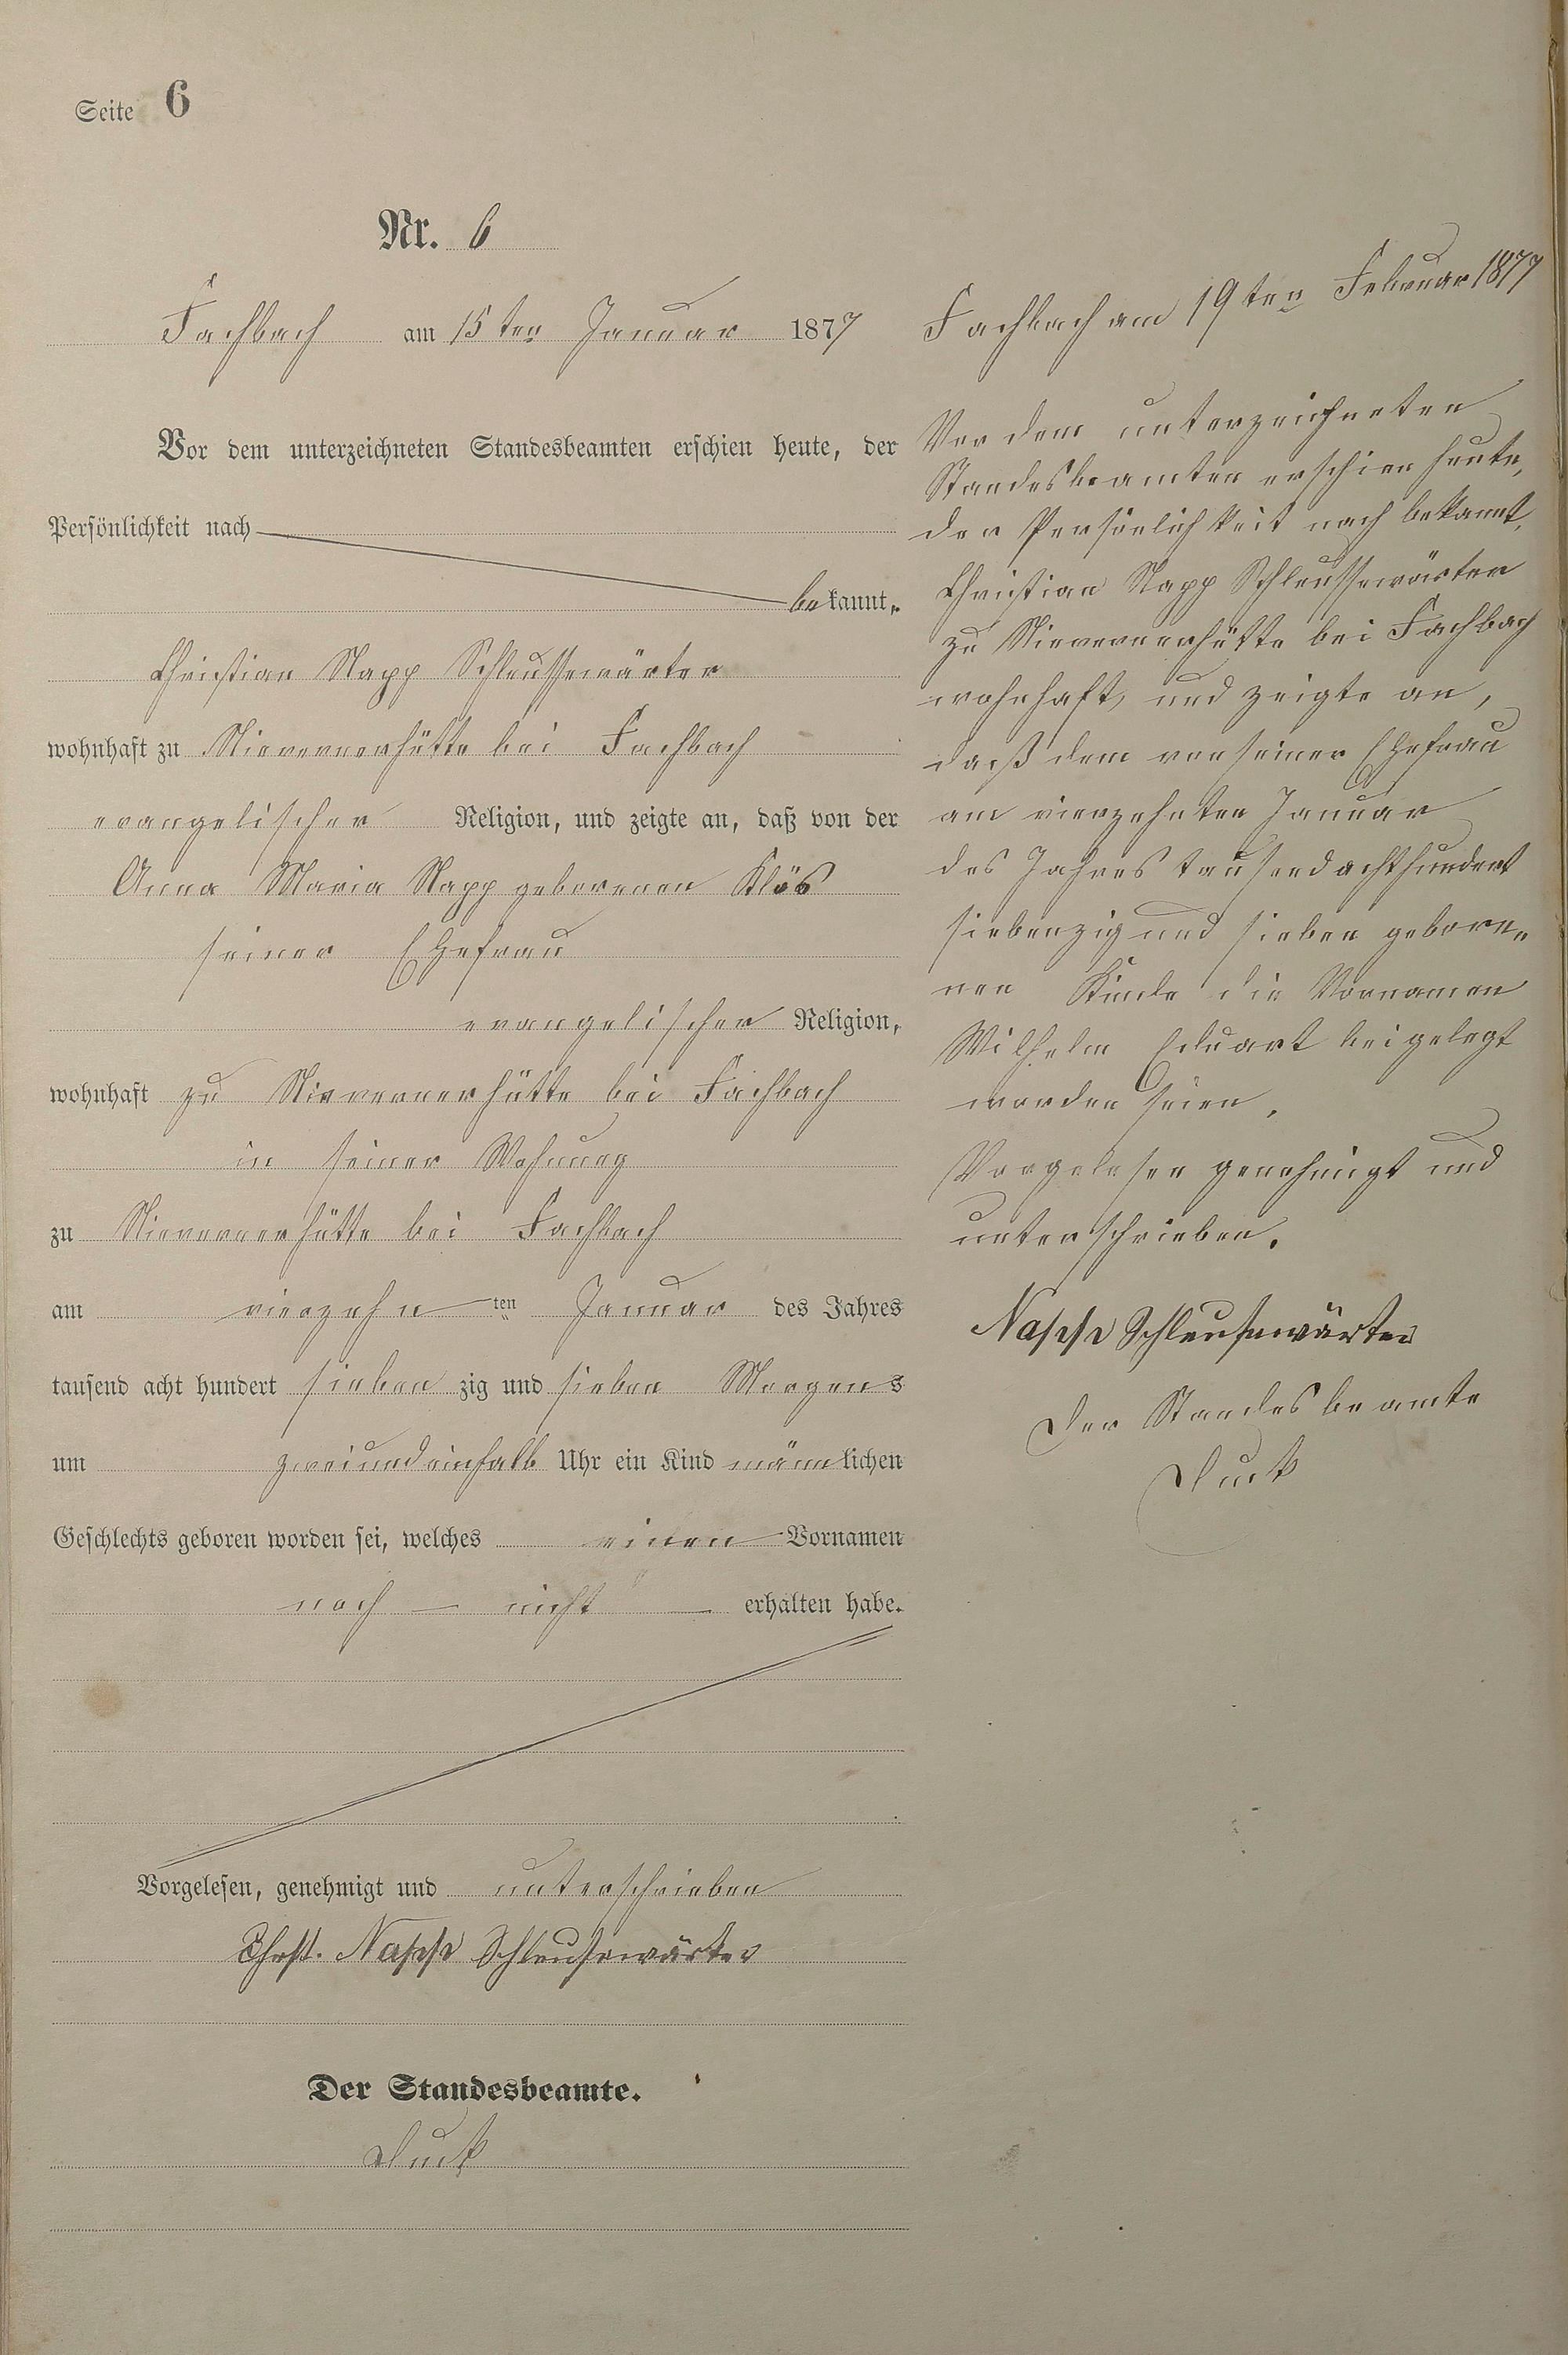 Seite 6
Nr. 6
Fachbach am 15ten Januar 1877
Vor dem unterzeichneten Standesbeamten erschien heute, der
Persönlichkeit nach
bekannt,
Christian Napp Schleussewärter
wohnhaft zu Nievernerhütte bei Fachbach
evangelischer Religion, und zeigte an, daß von der
Anna Maria Napp geborenen Klös
seiner Ehefrau
evangelischer Religion,
wohnhaft zu Nievernerhütte bei Fachbach
in seiner Wohnung
zu Nievernerhütte bei Fachbach
am vierzehn ten Januar des Jahres
tausend acht hundert sieben zig und sieben Morgens
um zweiundeinhalb Uhr ein Kind männlichen
Geschlechts geboren worden sei, welches einen Vornamen
noch — nicht — erhalten habe.
Vorgelesen, genehmigt und unterschrieben
Chrst. Napp Schleusewärter
Der Standesbeamte.
Duck
Fachbach am 19ten Februar 1877
Vor dem unterzeichneten
Standesbeamten erschien heute,
der Persönlichkeit nach bekannt,
Christian Napp Schleussewärter
zu Nievernerhütte bei Fachbach
wohnhaft, und zeigte an,
daß dem von seiner Ehefrau
am vierzehnten Januar
des Jahres tausendachthundert
siebenzig und sieben gebore„
nen Kinde die Vornamen
Wilhelm Eduart beigelegt
worden seien.
Vorgelesen genehmigt und
unterschrieben.
Napp Schleusewärter
Der Standesbeamte
Duck